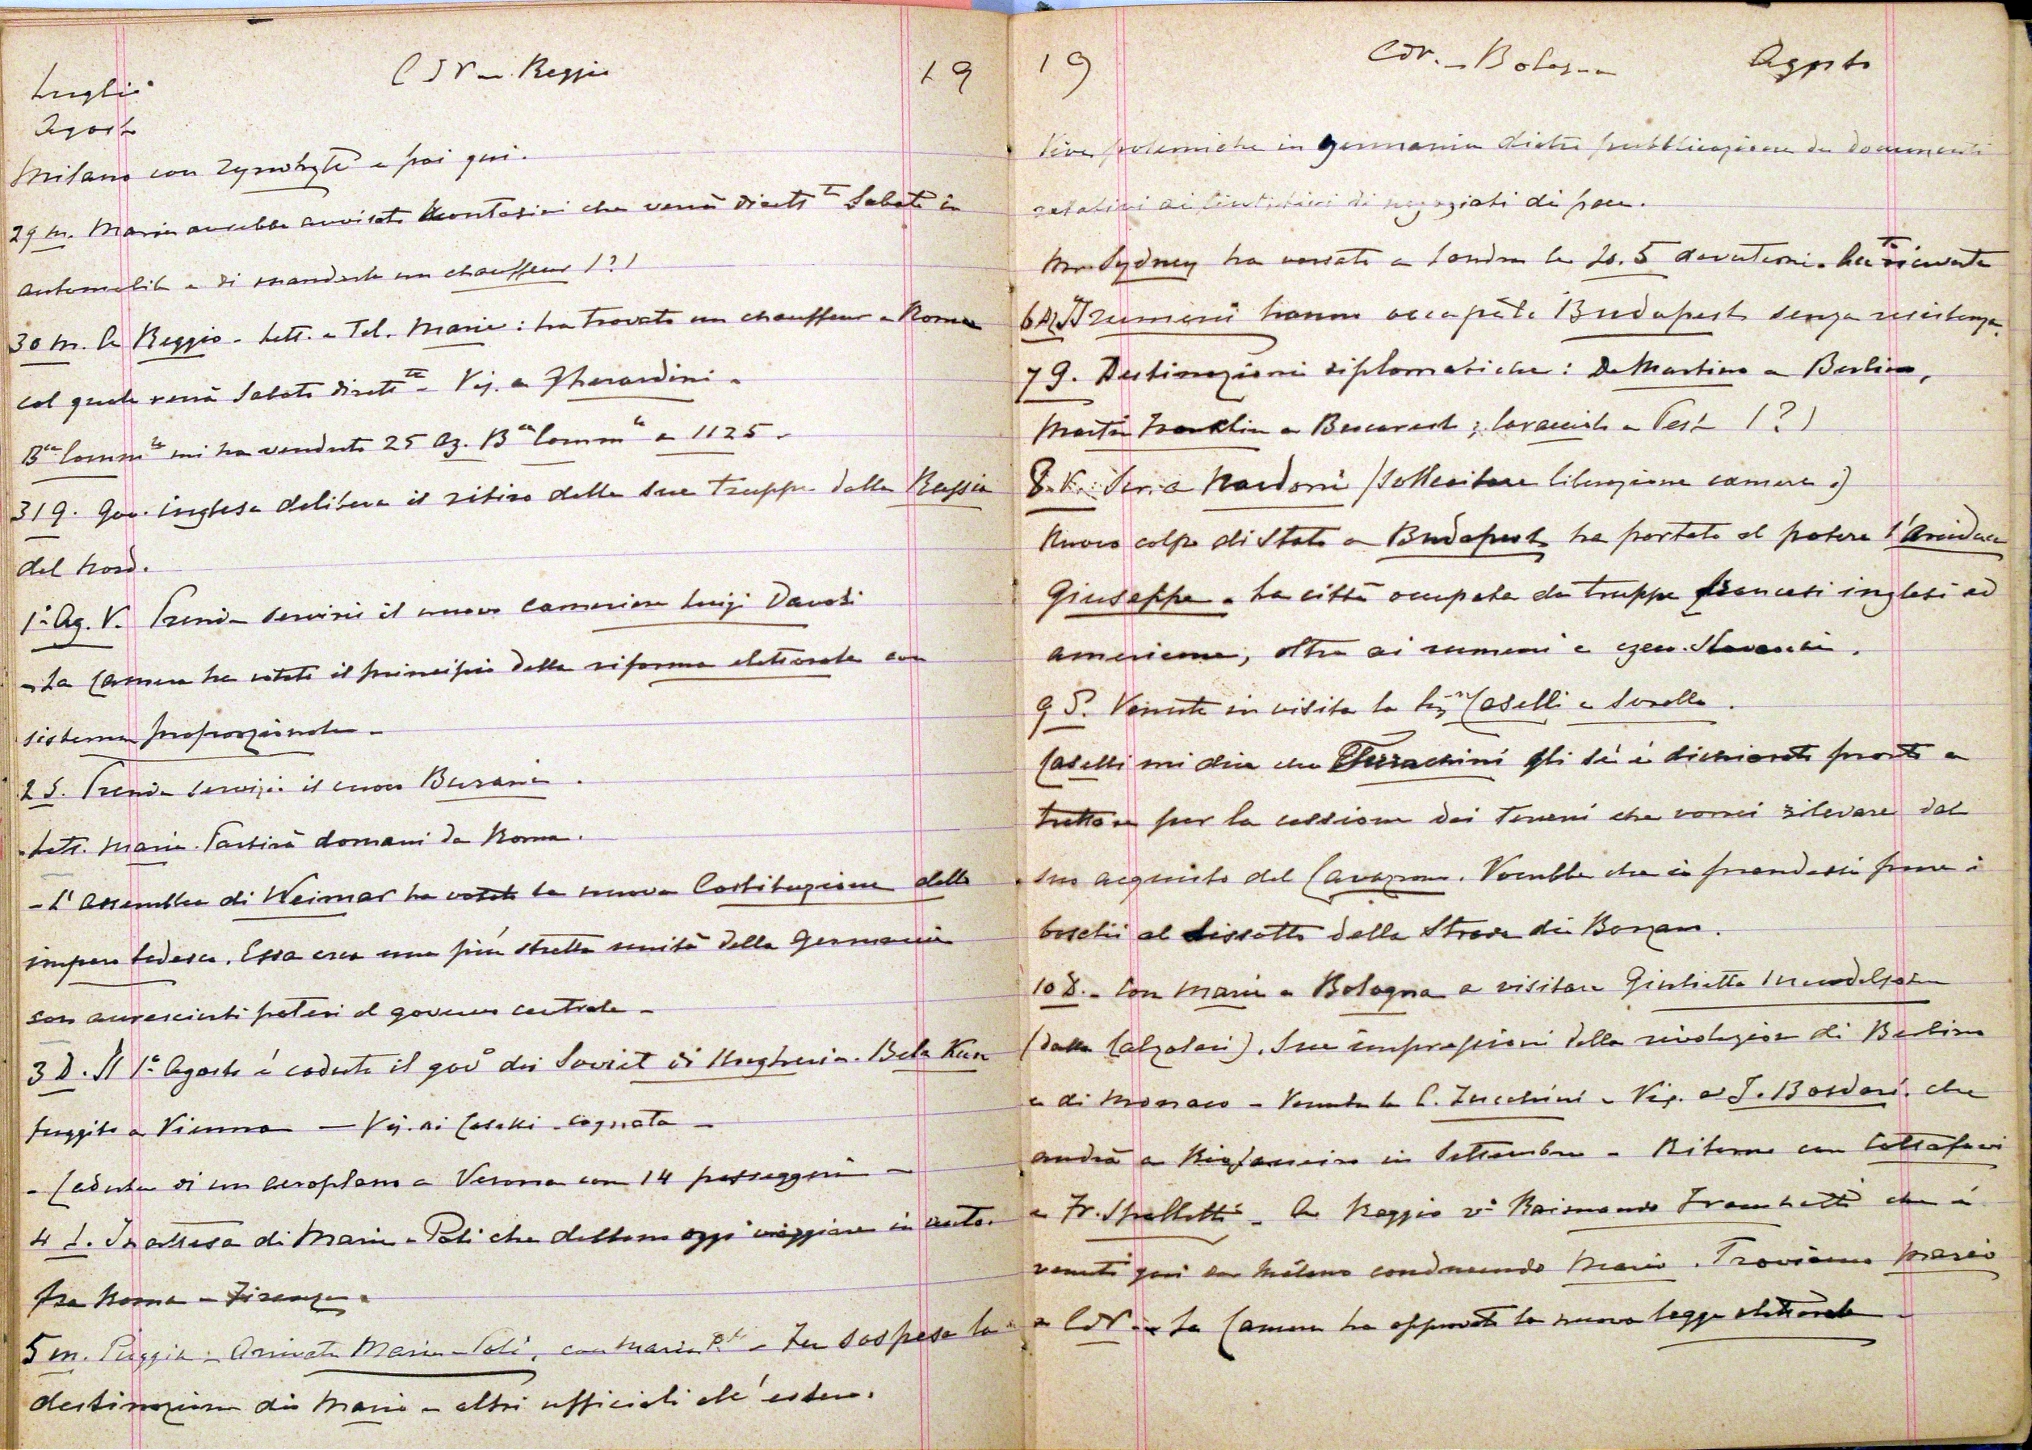 Luglio
Agosto
CdV - Reggio
19
Milano con e poi qui.
29 M. Maria avrebbe avvisato che verrà dirett.te Sabato in
automobile e di mandarle un chauffeur (?)
30 M. A Reggio - Lett. e Tel. Maria: ha trovato un chauffeur a Roma
col quale verrà Sabato dirett.te - Vis. a Gherardini -
B.ca Comm.le mi ha venduto 25 az. B.ca Comm.le a 1125 -
31 G. Gov. inglese delibera il ritiro delle sue truppe dalla Russia
del Nord.
1° Ag. V. Prende servizio il nuovo cameriere Luigi Davoli
- La Camera ha votato il principio della riforma elettorale con
sistema proporzionale -
2 S. Prende servizio il cuoco Burani.
Lett. Maria. Partirà domani da Roma.
- L'assemblea di Weimar ha votato la nuova Costituzione dello
impero tedesco. Essa crea una più stretta unità della Germania
con accresciuti poteri al governo centrale -
3 D. Il 1° Agosto è caduto il gov.o dei Soviet di Ungheria. Bela Kun
fuggito a Vienna - Vis. ai Caselli - cognata -
- Caduta di un aeroplano a Verona con 14 passeggeri -
4 L. In attesa di Maria - Poli che debbono oggi viaggiare in auto
fra Roma - Firenze.
5 M. Pioggia - Arrivate Maria - Poli, con Maria - Fu sospesa la
destinazione di Mario e altri ufficiali all'estero.
19
CdV. - Bologna
Agosto
Vive polemiche in Germania dietro pubblicazione di documenti
relativi ai tentativi di negoziati di pace.
Mr. Sydney ha versato a Londra le Ls. 5 Ric.ta ricevuta
6 M. I rumeni hanno occupato Budapest senza resistenza.
7 G. Destinazioni diplomatiche: De Martino a Berlino,
Martin Franklin a Bucarest; a Pest (?)
8. V. a Nardoni (sollecitare liberazione camera)
Nuovo colpo di Stato a Budapest ha portato al potere l'Arciduca
Giuseppe - La città occupata da truppe francesi inglesi ed
americane, oltre ai rumeni e czeco-slovacchi.
9 S. Venute in visita la Sig.ra Caselli e sorella.
Caselli mi dice che gli si è dichiarato pronto a
trattare per la cessione dei terreni che vorrei rilevare dal
suo acquisto del Cavazzone. Vorrebbe che io prendessi pure i
boschi al dissotto della Strada di Borzano.
10 D. - Con Maria a Bologna a visitare Giulietta Mendelssohn
(dalla Calzolari). Sue impressioni della rivoluzione di Berlino
e di Monaco - Veduta la C. Zucchini - Vis. a F. Bosdari che
andrà a Rio Janeiro in Settembre - Ritorno con Cottafavi
e Fr. Spalletti - A Reggio v'è Raimondo Franchetti che è
venuto qui da Milano conducendo Mario. Troviamo Mario
a CdV. - La Camera ha approvato la nuova legge elettorale -